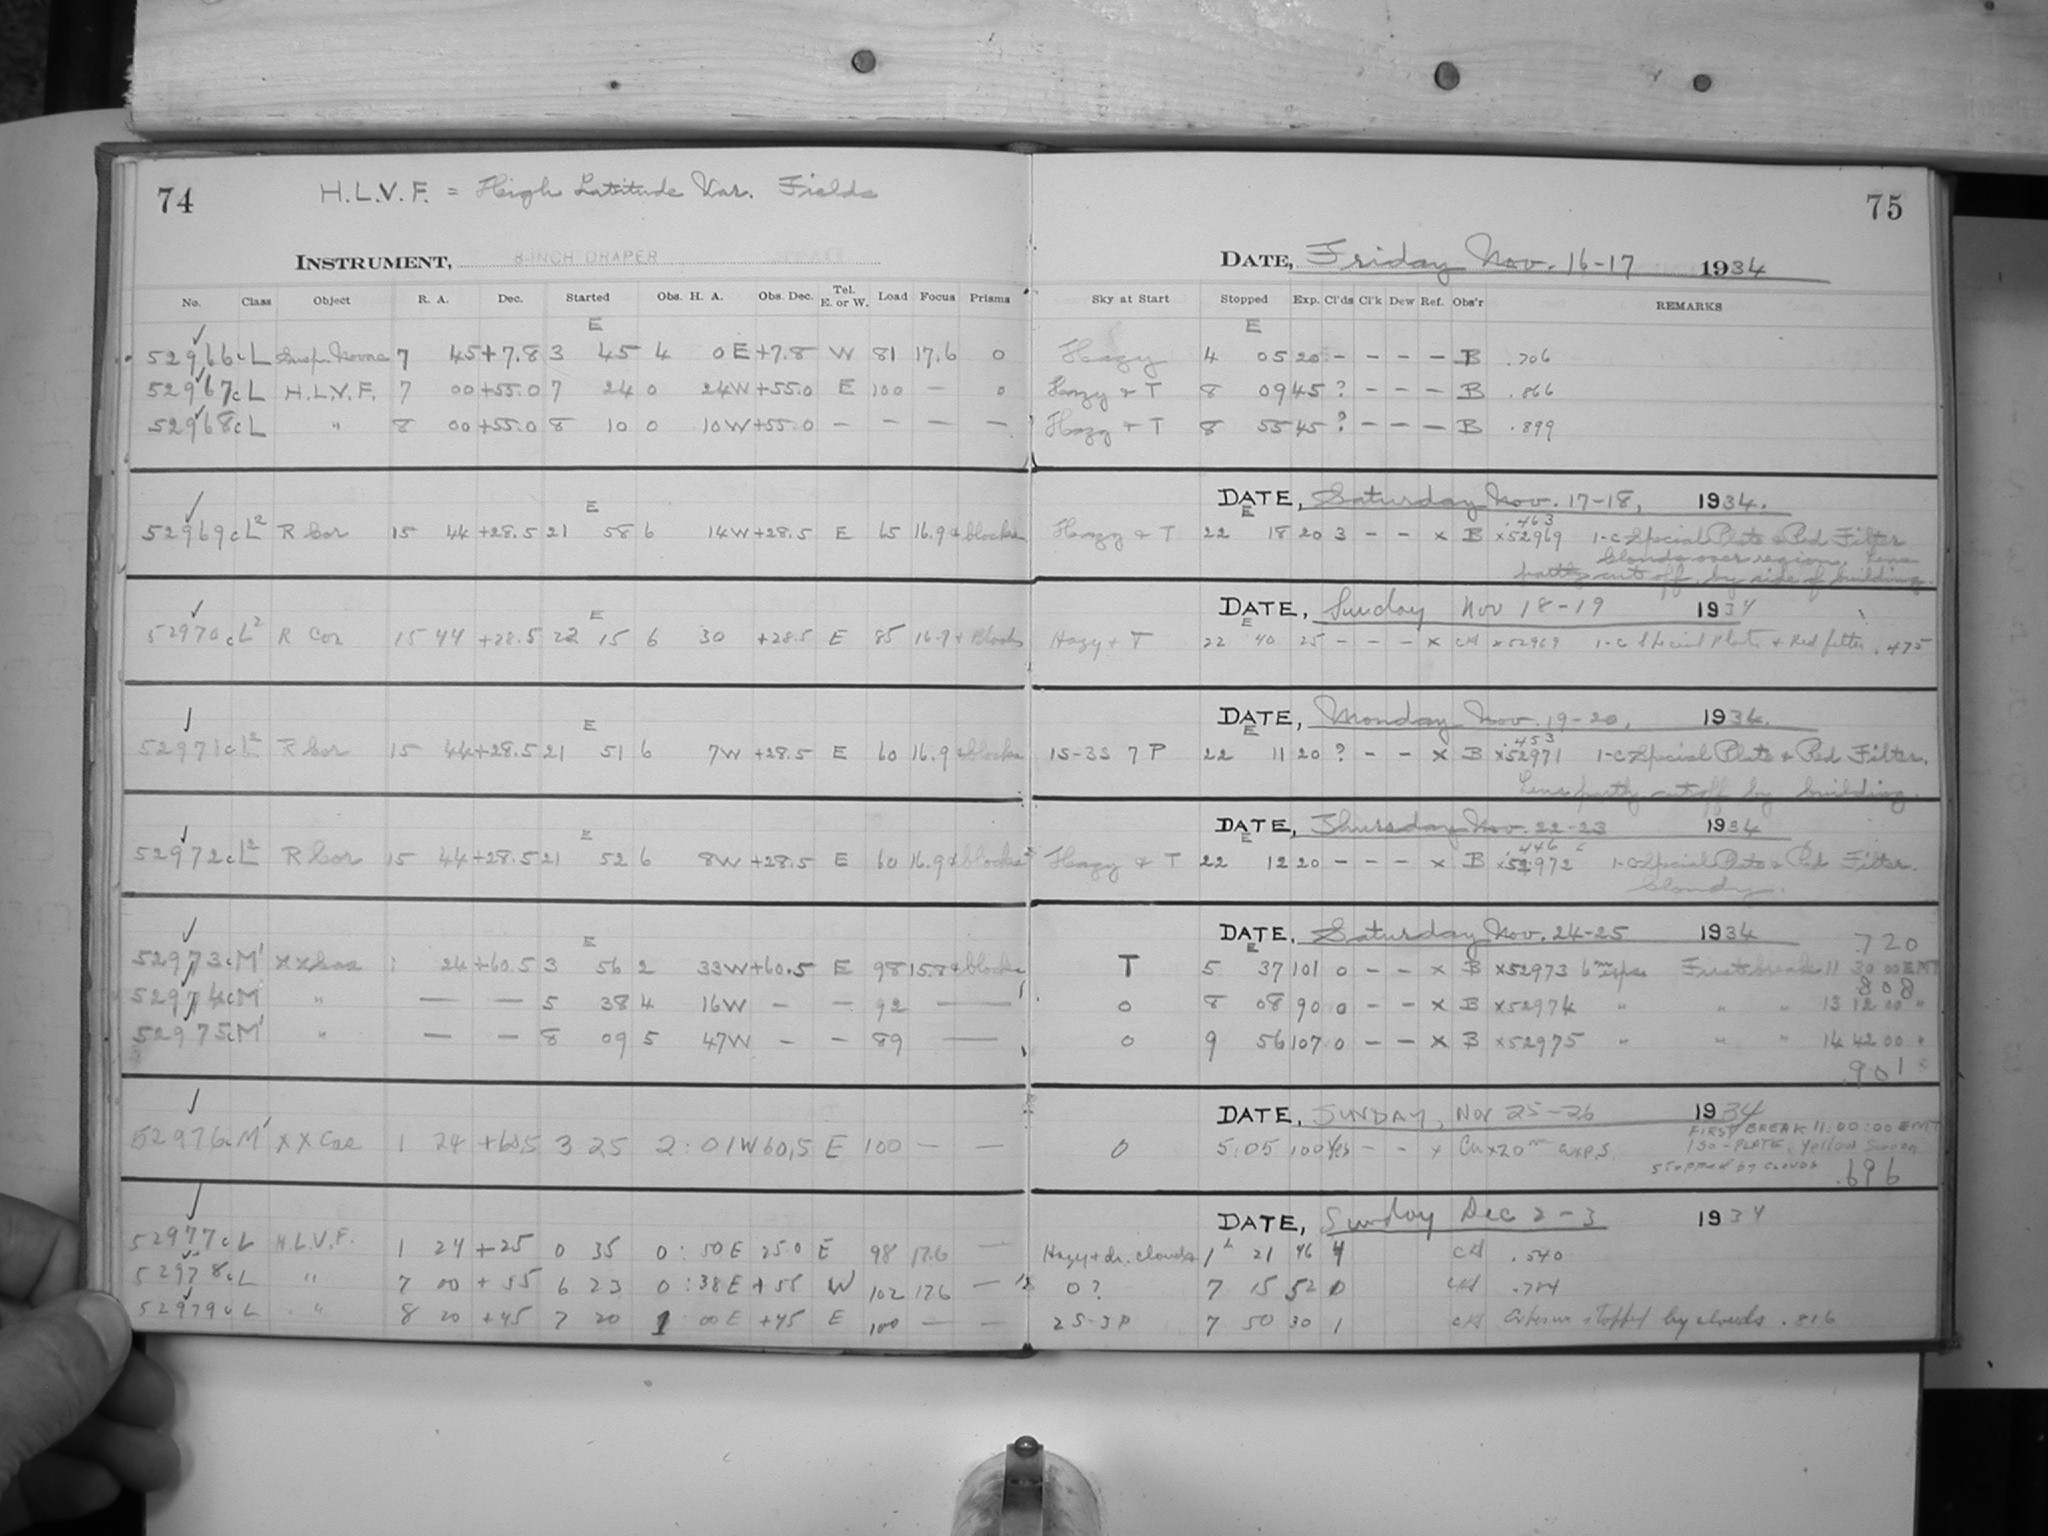 74 H.L.V.F. = High Latitude Var. Fields
INSTRUMENT, 8-INCH DRAPER
No. Class Object R. A. Dec. Started Obs. H. A. Obs. Dec. Tel. E. or W. Load Focus Prisms
E
52966 c L Susp. Novae 7 45 +7.8 3 45 4 0 E +7.8 W 81 17.6 0
52967 c L H.L.V.F. 7 00 +55.0 7 24 0 24 W +55.0 E 100 — 0
52968 c L " 8 00 +55.0 8 10 0 10 W +55.0 — — — —
E
52969 c L² R Cor 15 44 +28.5 21 58 6 14 W +28.5 E 65 16.9 + blocks
E
52970 c L² R Cor 15 44 +28.5 22 15 6 30 +28.5 E 85 16.9 + Blocks
E
52971 c L² R Cor 15 44 +28.5 21 51 6 7 W +28.5 E 60 16.9 + blocks
E
52972 c L² R Cor 15 44 +28.5 21 52 6 8 W +28.5 E 60 16.9 + blocks
E
52973 c M' XX Cas 1 24 +60.5 3 56 2 33 W +60.5 E 98 15.8 + blocks
52974 c M' " — — 5 38 4 16 W — — 92 —
52975 c M' " — — 8 09 5 47 W — — 89 —
52976 c M' XX Cas 1 24 +60.5 3 25 2:01 W 60.5 E 100 — —
52977 c L H.L.V.F. 1 24 +25 0 35 0:50 E 25.0 E 98 17.6 —
52978 c L " 7 00 +55 6 23 0:38 E +55 W 102 17.6 —
52979 c L " 8 20 +45 7 20 1 00 E +45 E 100 — —
75
DATE, Friday Nov. 16-17 1934
Sky at Start Stopped Exp. Cl'ds Cl'k Dew Ref. Obs'r REMARKS
E
Hazy 4 05 20 — — — — B .706
Hazy + T 8 09 45 ? — — — B .866
Hazy + T 8 55 45 ? — — — B .899
DATE, Saturday Nov. 17-18, 1934.
E .463
Hazy + T 22 18 20 3 — — x B x52969 1-C Special Plate + Red Filter
Clouds over region. Lens
partly cut off by side of building.
DATE, Sunday Nov 18-19 1934
E
Hazy + T 22 40 25 — — — x CH x52969 1-C Special Plate + Red filter .475
DATE, Monday Nov. 19-20, 1934.
E .453
1S-3S 7 P 22 11 20 ? — — x B x52971 1-C Special Plate + Red Filter.
Lens partly cut off by building.
DATE, Thursday Nov. 22-23 1934
E .446
Hazy + T 22 12 20 — — — x B x52972 1-C Special Plate + Red Filter.
Cloudy.
DATE, Saturday Nov. 24-25 1934
E .720
T 5 37 101 0 — — x B x52973 6ᵐ exps First break 11 30 00 EMT
.808
0 8 08 90 0 — — x B x52974 " " " 13 12 00 "
0 9 56 107 0 — — x B x52975 " " " 14 42 00 "
.901
DATE, SUNDAY, Nov 25-26 1934
FIRST BREAK 11:00:00 EMT
0 5:05 100 Yes — — x Cn x20ᵐ exps. ISO-PLATE, Yellow Screen
Stopped by clouds .696
DATE, Sunday Dec 2-3 1934
Hazy + dr. clouds 1ʰ 21 46 4 CH .540
0? 7 15 52 0 CH .784
2S-3P 7 50 30 1 CH Exposure stopped by clouds .816